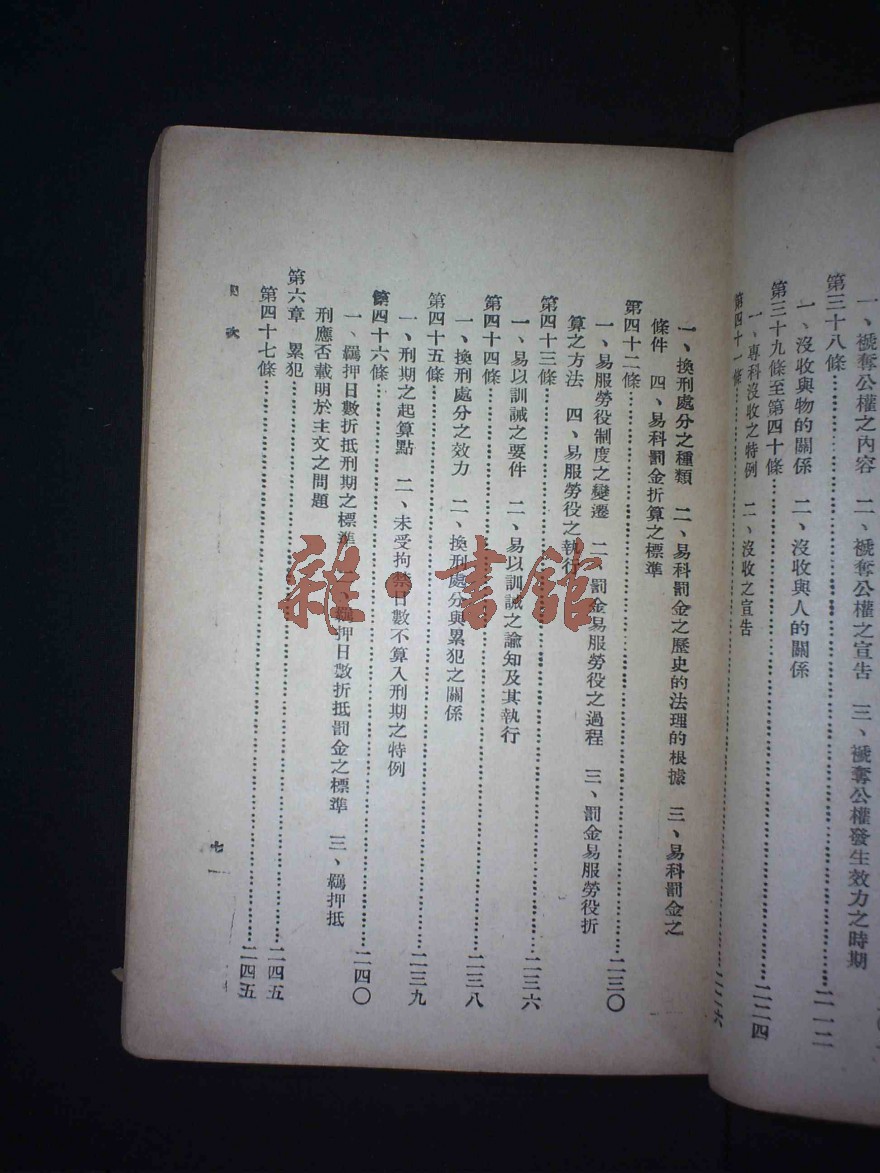 一、褫奪公權之內容　二、褫奪公權之宣告　三、褫奪公權發生效力之時期
第三十八條……二一二
一、沒收與物的關係　二、沒收與人的關係
第三十九條至第四十條……二二四
一、專科沒收之特例　二、沒收之宣告
第四十一條……二二六
一、換刑處分之種類　二、易科罰金之歷史的法理的根據　三、易科罰金之
條件　四、易科罰金折算之標準
第四十二條……二三〇
一、易服勞役制度之變遷　二、罰金易服勞役之過程　三、罰金易服勞役折
算之方法　四、易服勞役之執行
第四十三條……二三六
一、易以訓誡之要件　二、易以訓誡之諭知及其執行
第四十四條……二三八
一、換刑處分之效力　二、換刑處分與累犯之關係
第四十五條……二三九
一、刑期之起算點　二、未受拘禁日數不算入刑期之特例
第四十六條……二四〇
一、羈押日數折抵刑期之標準　二、羈押日數折抵罰金之標準　三、羈押抵
刑應否載明於主文之問題
第六章　累犯……二四五
第四十七條……二四五
目次
七
雜·書館